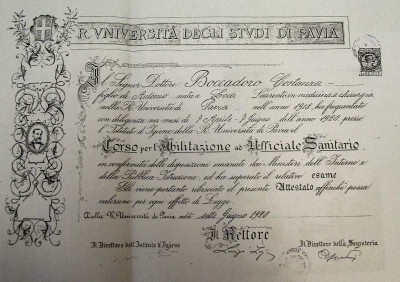 R. VNIVERSITÀ DEGLI STVDI DI PAVIA
Il Signor Dottore Boccadoro Costanza
figlio di Antonio nata a Laureato in medicina e chirurgia
nella R. Università di Pavia nell'anno 1918, ha frequentato
con diligenza nei mesi di Aprile - Giugno dell'anno 1920 presso
l'Istituto d'Igiene della R. Università di Pavia il
Corso per l'Abilitazione ad Ufficiale Sanitario
in conformità delle disposizioni emanate dai Ministeri dell'Interno e
della Pubblica Istruzione, ed ha superato il relativo esame
Gli viene pertanto rilasciato il presente Attestato affinchè possa
valersene per ogni effetto di Legge
Dalla R. Università di Pavia addì sette Giugno 1920
Il Rettore
Il Direttore dell'Istituto d'Igiene
Il Direttore della Segreteria